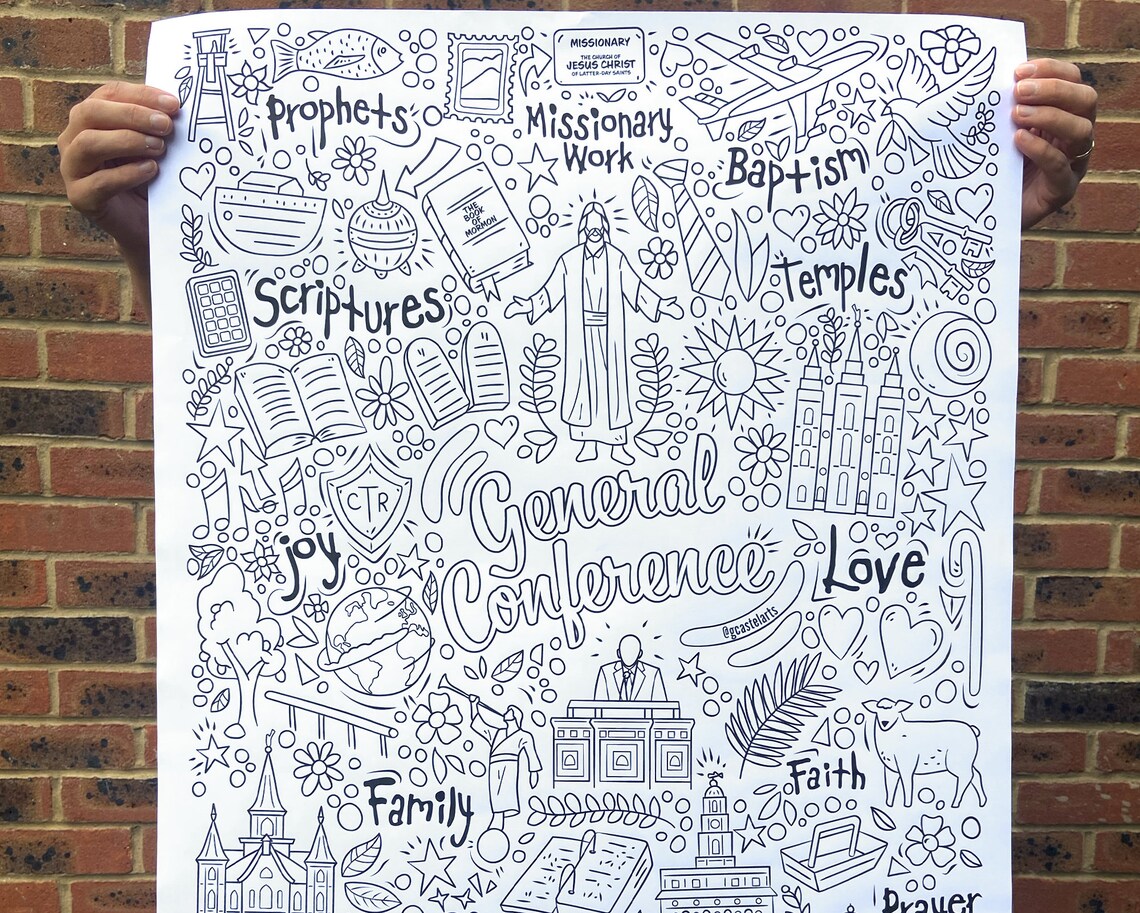 MISSIONARY
THE CHURCH OF
JESUS CHRIST
OF LATTER-DAY SAINTS
Prophets
Missionary
Work
Baptism
THE
BOOK
OF
MORMON
Scriptures
Temples
CTR
General
Conference
joy
Love
@gcastelarts
Family
Faith
Prayer